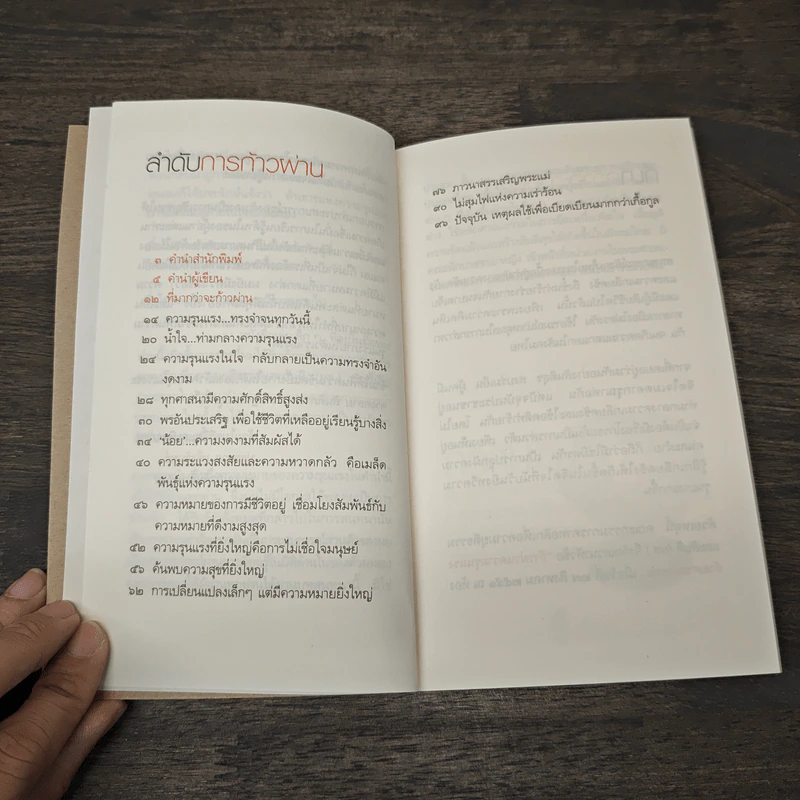 ลำดับการก้าวผ่าน
๓ คำนำสำนักพิมพ์
๕ คำนำผู้เขียน
๑๒ ที่มากว่าจะก้าวผ่าน
๑๔ ความรุนแรง...ทรงจำจนทุกวันนี้
๒๐ น้ำใจ...ท่ามกลางความรุนแรง
๒๔ ความรุนแรงในใจ กลับกลายเป็นความทรงจำอัน
งดงาม
๒๘ ทุกศาสนามีความศักดิ์สิทธิ์สูงส่ง
๓๐ พรอันประเสริฐ เพื่อใช้ชีวิตที่เหลืออยู่เรียนรู้บางสิ่ง
๓๔ 'น้อย'...ความงดงามที่สัมผัสได้
๔๐ ความระแวงสงสัยและความหวาดกลัว คือเมล็ด
พันธุ์แห่งความรุนแรง
๔๖ ความหมายของการมีชีวิตอยู่ เชื่อมโยงสัมพันธ์กับ
ความหมายที่ดีงามสูงสุด
๕๒ ความรุนแรงที่ยิ่งใหญ่คือการไม่เชื่อใจมนุษย์
๕๖ ค้นพบความสุขที่ยิ่งใหญ่
๖๒ การเปลี่ยนแปลงเล็กๆ แต่มีความหมายยิ่งใหญ่
๗๖ ภาวนาสรรเสริญพระแม่
๙๐ ไม่สุมไฟแห่งความเร่าร้อน
๙๖ ปัจจุบัน เหตุผลใช้เพื่อเบียดเบียนมากกว่าเกื้อกูล